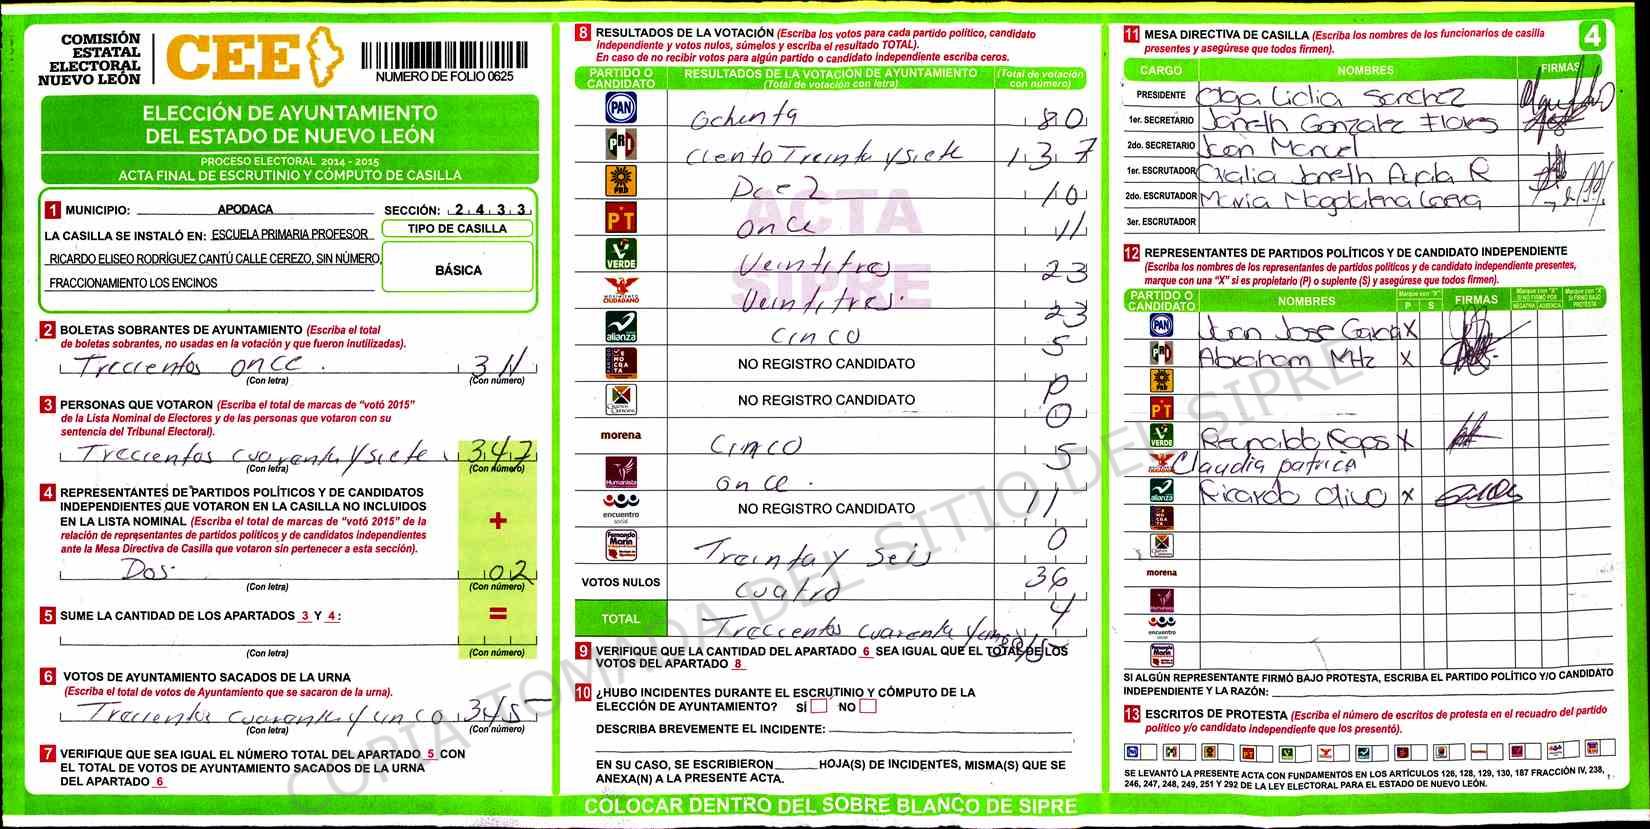 COMISIÓN
ESTATAL
ELECTORAL
NUEVO LEÓN
CEE
NUMERO DE FOLIO 0625
ELECCIÓN DE AYUNTAMIENTO
DEL ESTADO DE NUEVO LEÓN
PROCESO ELECTORAL 2014 - 2015
ACTA FINAL DE ESCRUTINIO Y CÓMPUTO DE CASILLA
1 MUNICIPIO: APODACA SECCIÓN: 2 4 3 3
LA CASILLA SE INSTALÓ EN: ESCUELA PRIMARIA PROFESOR
RICARDO ELISEO RODRÍGUEZ CANTÚ CALLE CEREZO, SIN NÚMERO,
FRACCIONAMIENTO LOS ENCINOS
TIPO DE CASILLA
BÁSICA
2 BOLETAS SOBRANTES DE AYUNTAMIENTO (Escriba el total
de boletas sobrantes, no usadas en la votación y que fueron inutilizadas).
Trecientos once. 311
(Con letra) (Con número)
3 PERSONAS QUE VOTARON (Escriba el total de marcas de "votó 2015"
de la Lista Nominal de Electores y de las personas que votaron con su
sentencia del Tribunal Electoral).
Trecientos cuarenta y siete 347
(Con letra) (Con número)
4 REPRESENTANTES DE PARTIDOS POLÍTICOS Y DE CANDIDATOS
INDEPENDIENTES QUE VOTARON EN LA CASILLA NO INCLUIDOS
EN LA LISTA NOMINAL (Escriba el total de marcas de "votó 2015" de la
relación de representantes de partidos políticos y de candidatos independientes
ante la Mesa Directiva de Casilla que votaron sin pertenecer a esta sección).
+
Dos. 02
(Con letra) (Con número)
5 SUME LA CANTIDAD DE LOS APARTADOS 3 Y 4: =
(Con letra) (Con número)
6 VOTOS DE AYUNTAMIENTO SACADOS DE LA URNA
(Escriba el total de votos de Ayuntamiento que se sacaron de la urna).
Trecientos cuarenta y cinco 345
(Con letra) (Con número)
7 VERIFIQUE QUE SEA IGUAL EL NÚMERO TOTAL DEL APARTADO 5 CON
EL TOTAL DE VOTOS DE AYUNTAMIENTO SACADOS DE LA URNA
DEL APARTADO 6
8 RESULTADOS DE LA VOTACIÓN (Escriba los votos para cada partido político, candidato
independiente y votos nulos, súmelos y escriba el resultado TOTAL).
En caso de no recibir votos para algún partido o candidato independiente escriba ceros.
PARTIDO O CANDIDATO RESULTADOS DE LA VOTACIÓN DE AYUNTAMIENTO (Total de votación con letra) (Total de votación con número)
PAN ochenta 80
PRD ciento Treinta y siete 137
PRD Diez 10
PT once 11
VERDE Veintitres 23
MOVIMIENTO CIUDADANO Veintitres. 23
alianza cinco 5
DEMOCRATA NO REGISTRO CANDIDATO
NO REGISTRO CANDIDATO 0
0
morena cinco 5
Humanista once. 11
encuentro social NO REGISTRO CANDIDATO
Fernando Marín Treinta y seis 0
VOTOS NULOS cuatro 36
TOTAL Trecientos cuarenta y cinco 4
345
ACTA
SIPRE
9 VERIFIQUE QUE LA CANTIDAD DEL APARTADO 6 SEA IGUAL QUE EL TOTAL DE LOS
VOTOS DEL APARTADO 8
10 ¿HUBO INCIDENTES DURANTE EL ESCRUTINIO Y CÓMPUTO DE LA
ELECCIÓN DE AYUNTAMIENTO? SÍ NO
DESCRIBA BREVEMENTE EL INCIDENTE:
EN SU CASO, SE ESCRIBIERON HOJA(S) DE INCIDENTES, MISMA(S) QUE SE
ANEXA(N) A LA PRESENTE ACTA.
COLOCAR DENTRO DEL SOBRE BLANCO DE SIPRE
11 MESA DIRECTIVA DE CASILLA (Escriba los nombres de los funcionarios de casilla
presentes y asegúrese que todos firmen).
4
CARGO NOMBRES FIRMAS
PRESIDENTE Olga Lidia Sanchez
1er. SECRETARIO Janeth Gonzalez Flores
2do. SECRETARIO Juan Manuel
1er. ESCRUTADOR Janeth Ayala R
2do. ESCRUTADOR Maria Magdalena
3er. ESCRUTADOR
12 REPRESENTANTES DE PARTIDOS POLÍTICOS Y DE CANDIDATO INDEPENDIENTE
(Escriba los nombres de los representantes de partidos políticos y de candidato independiente presentes,
marque con una "X" si es propietario (P) o suplente (S) y asegúrese que todos firmen).
PARTIDO O CANDIDATO NOMBRES Marque con "X" P S FIRMAS Marque con "X" SI NO FIRMÓ POR NEGATIVA AUSENCIA Marque con "X" SI FIRMÓ BAJO PROTESTA
PAN Juan Jose Garcia X
Abraham MHz X
PRD
PT
VERDE Reynaldo X
Claudia patricia
alianza Ricardo Olivo X
morena
Humanista
encuentro social
SI ALGÚN REPRESENTANTE FIRMÓ BAJO PROTESTA, ESCRIBA EL PARTIDO POLÍTICO Y/O CANDIDATO
INDEPENDIENTE Y LA RAZÓN:
13 ESCRITOS DE PROTESTA (Escriba el número de escritos de protesta en el recuadro del partido
político y/o candidato independiente que los presentó).
SE LEVANTÓ LA PRESENTE ACTA CON FUNDAMENTOS EN LOS ARTÍCULOS 126, 128, 129, 130, 187 FRACCIÓN IV, 238,
246, 247, 248, 249, 251 Y 292 DE LA LEY ELECTORAL PARA EL ESTADO DE NUEVO LEÓN.
COPIA TOMADA DEL SITIO DEL SIPRE